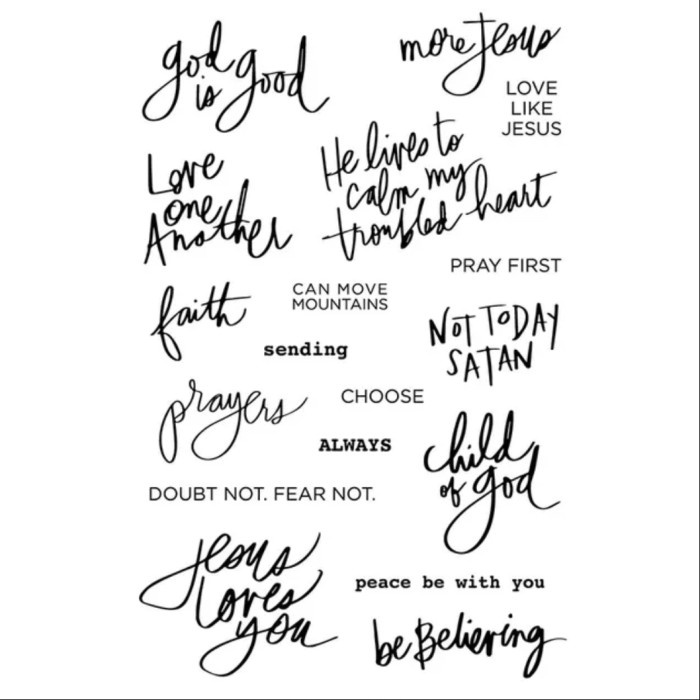 god
is good
more Jesus
LOVE
LIKE
JESUS
Love
one
Another
He lives to
calm my
troubled heart
PRAY FIRST
faith
CAN MOVE
MOUNTAINS
sending
NOT TODAY
SATAN
prayers
CHOOSE
ALWAYS
child
of god
DOUBT NOT. FEAR NOT.
Jesus
loves
you
peace be with you
be Believing